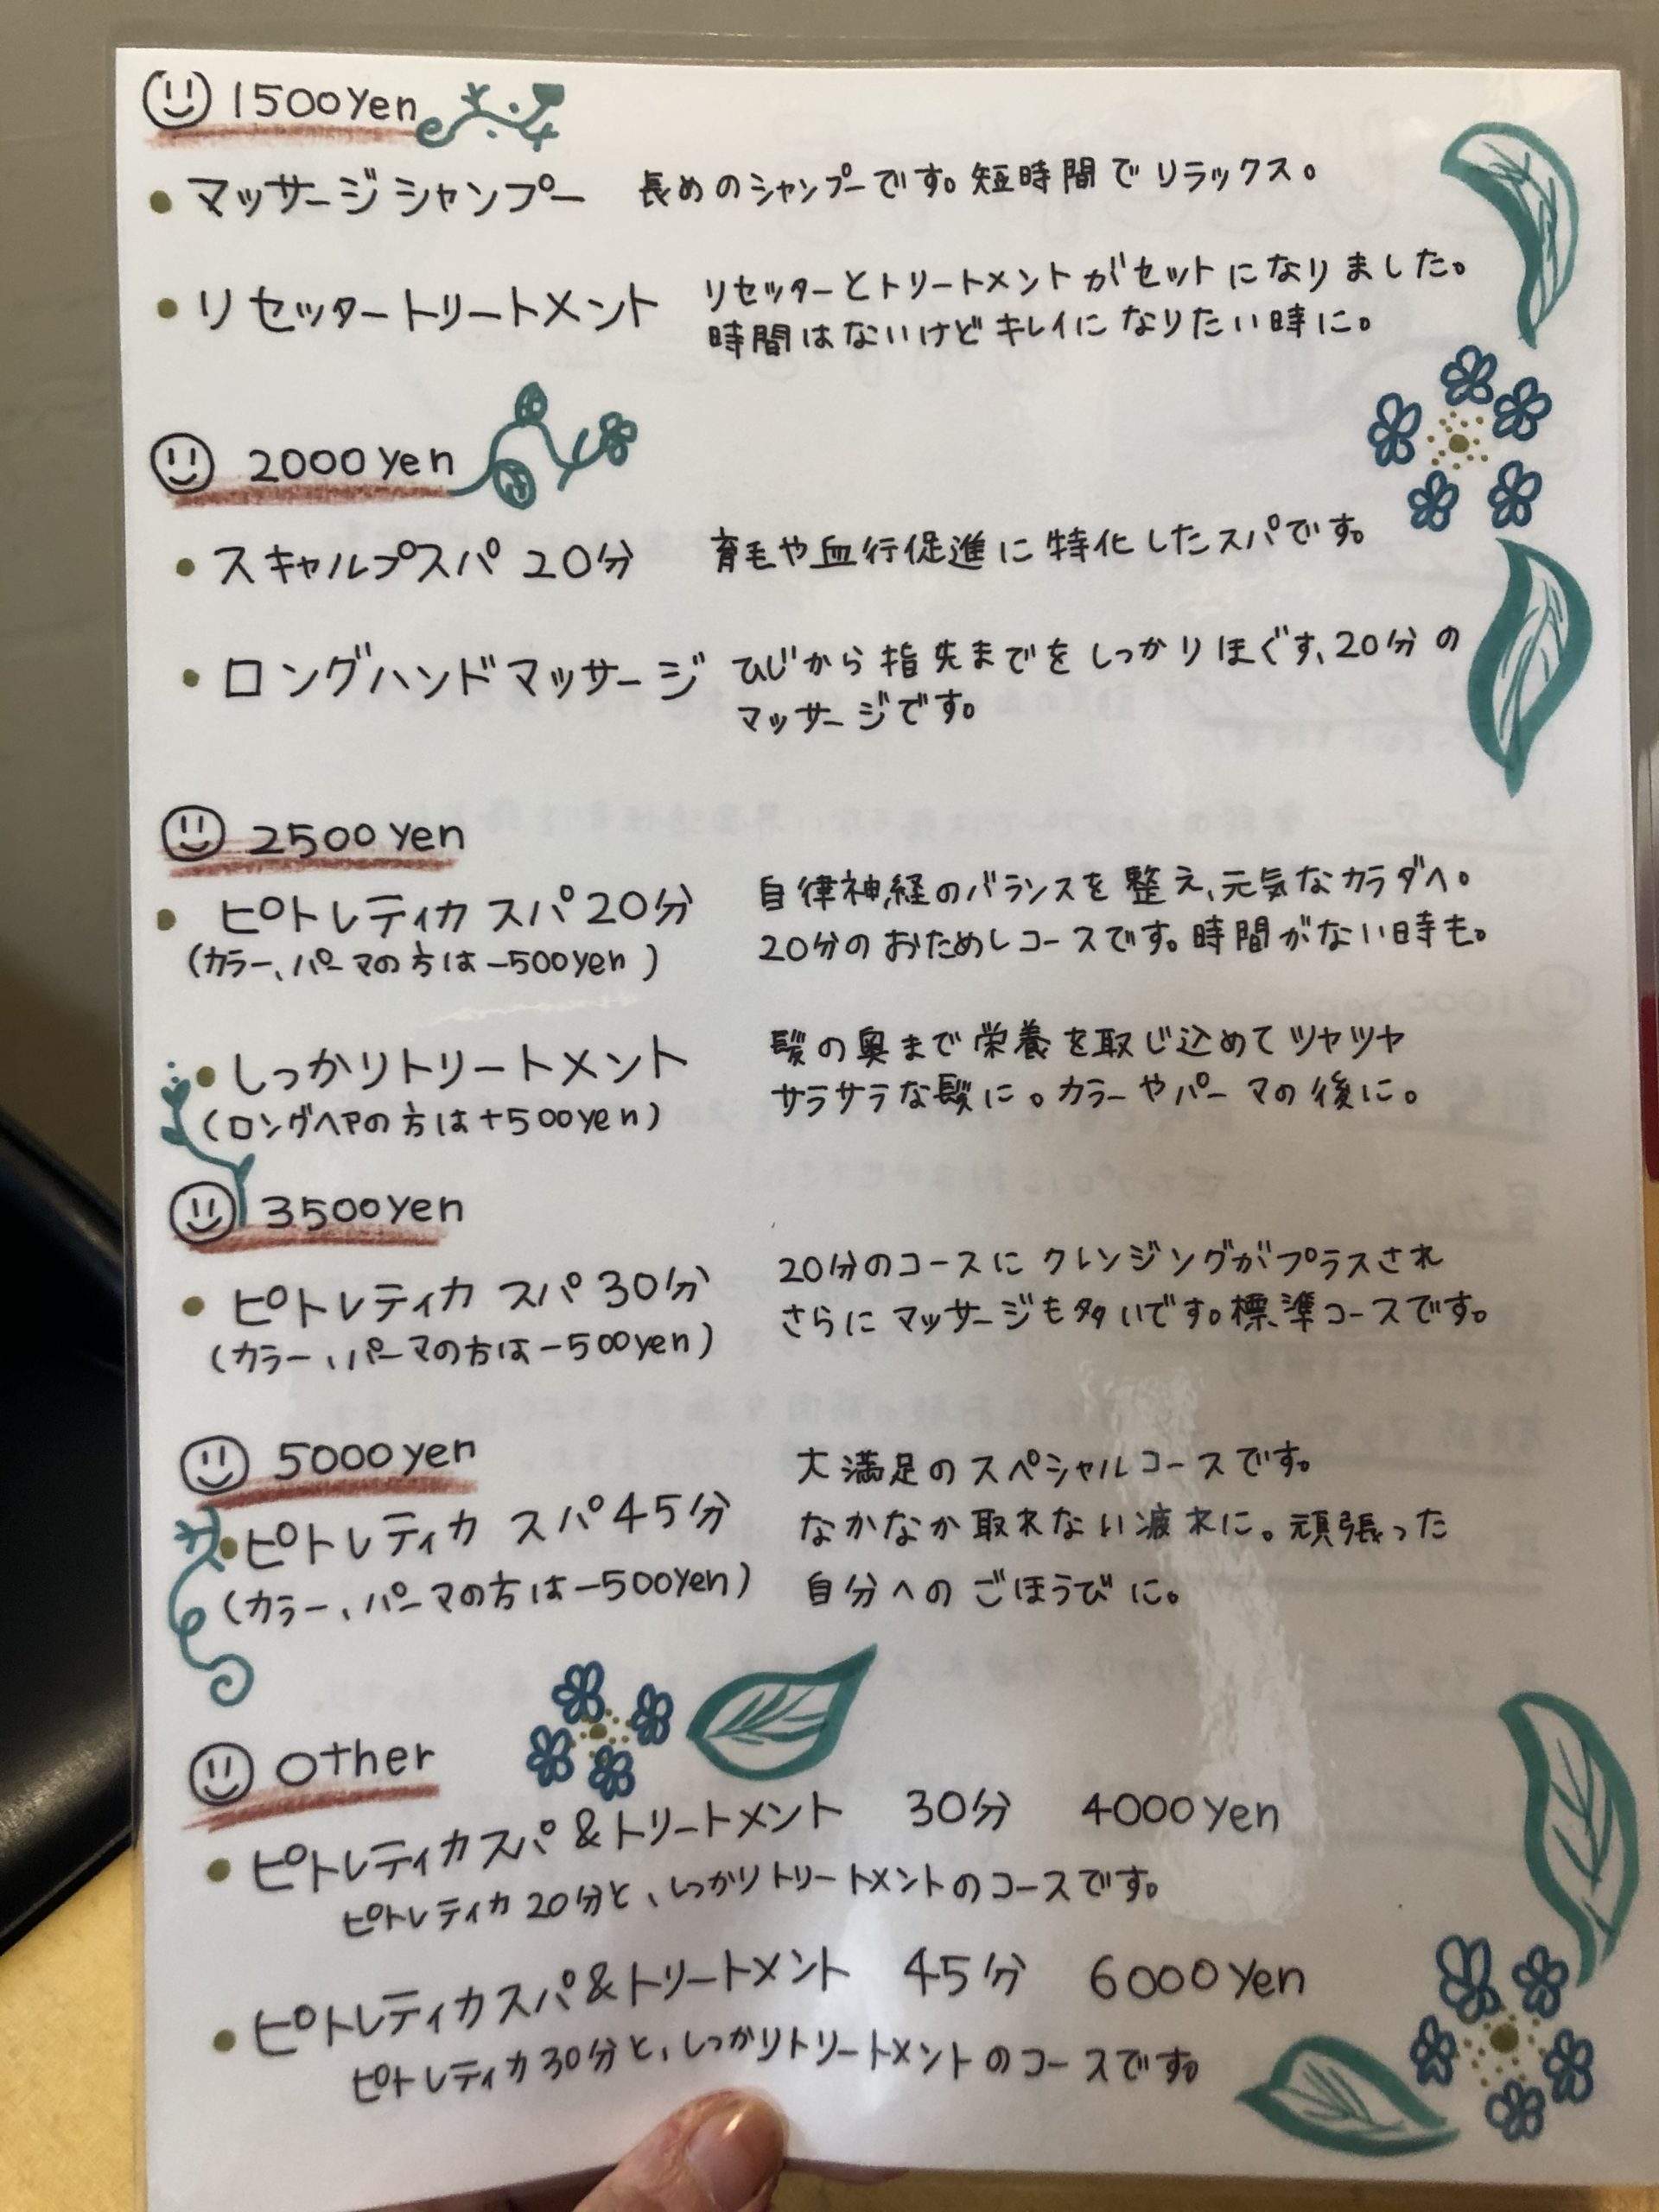 1500yen
・マッサージシャンプー 長めのシャンプーです。短時間でリラックス。
・リセッタートリートメント リセッターとトリートメントがセットになりました。
時間はないけどキレイになりたい時に。
2000yen
・スキャルプスパ 20分 育毛や血行促進に特化したスパです。
・ロングハンドマッサージ ひじから指先までをしっかりほぐす、20分の
マッサージです。
2500yen
・ピトレティカ スパ 20分 自律神経のバランスを整え、元気なカラダへ。
(カラー、パーマの方は-500yen) 20分のおためしコースです。時間がない時も。
・しっかりトリートメント 髪の奥まで栄養を取じ込めてツヤツヤ
(ロングヘアの方は+500yen) サラサラな髪に。カラーやパーマの後に。
3500yen
・ピトレティカ スパ 30分 20分のコースにクレンジングがプラスされ
(カラー、パーマの方は-500yen) さらにマッサージも多いです。標準コースです。
5000yen 大満足のスペシャルコースです。
・ピトレティカ スパ 45分 なかなか取れない疲れに。頑張った
(カラー、パーマの方は-500yen) 自分へのごほうびに。
other
・ピトレティカスパ&トリートメント 30分 4000yen
ピトレティカ20分と、しっかりトリートメントのコースです。
・ピトレティカスパ&トリートメント 45分 6000yen
ピトレティカ30分と、しっかりトリートメントのコースです。